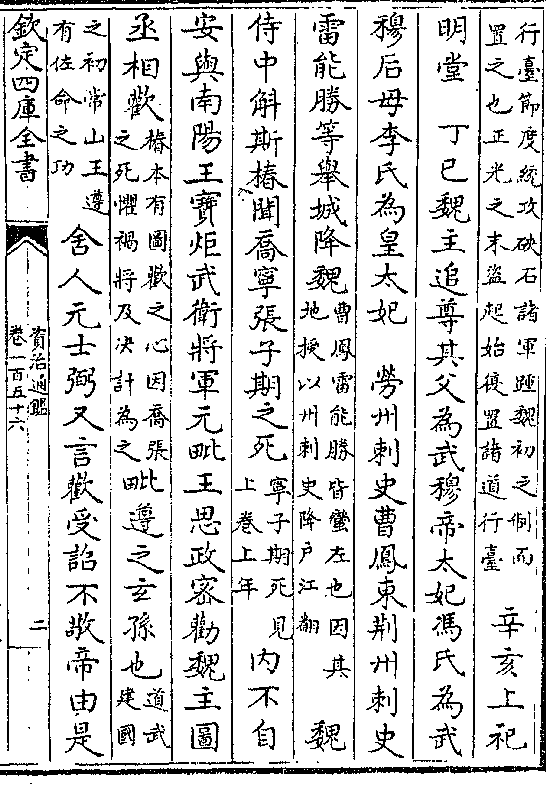 行臺節度統攻硖石諸軍踵魏初之制而
置之也正光之末盗起始復置諸道行臺
辛亥上祀
明堂　丁巳魏主追尊其父為武穆帝太妃馮氏為武
穆后母李氏為皇太妃　勞州刺史曹鳳東荆州刺史
雷能勝等舉城降魏
曹鳳雷能勝皆蠻左也因其
地授以州刺史降户江翻
魏
侍中斛斯椿聞喬寧張子期之死
寧子期死見
上卷上年
内不自
安與南陽王寶炬武衛將軍元毗王思政密勸魏主圖
丞相歡
椿本有圖歡之心因喬張
之死懼禍將及决計為之
毗遵之玄孫也
道武
建國
之初常山王遵
有佐命之功
舍人元士弼又言歡受詔不敬帝由是
欽定四庫全書
資治通鑑
卷一百五十六
二